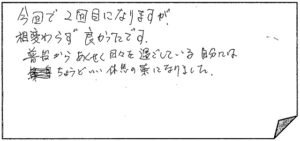 今回で2回目になりますが、
相変わらず良かったです。
普段からあくせく日々を過ごしている自分には
ちょうどいい休息の策になりました。